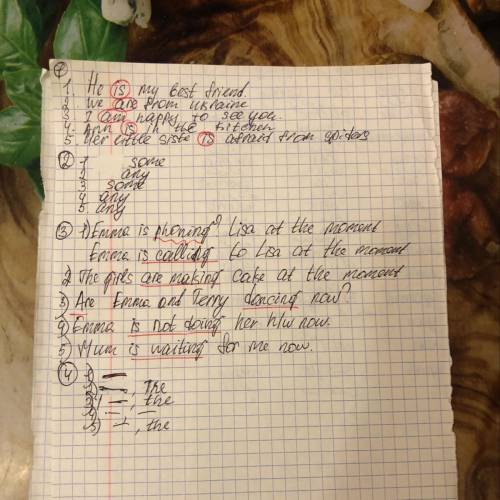 1
1. He is my best friend.
2 We are from Ukraine
3. I am happy to see you.
4. Ann is in the kitchen
5. Her little siste is afraid from spiders
2 1 some
2 any
3 some
4 any
5 any
3 1) Emma is phoning? Lisa at the moment
Emma is calling to Lisa at the moment
2 The girls are making cake at the moment
3) Are Emma and Terry dancing now?
4) Emma is not doing her h/w now.
5) Mum is waiting for me now.
4 1) —
2) —, The
3) —, the
4) — , —
5) —, the